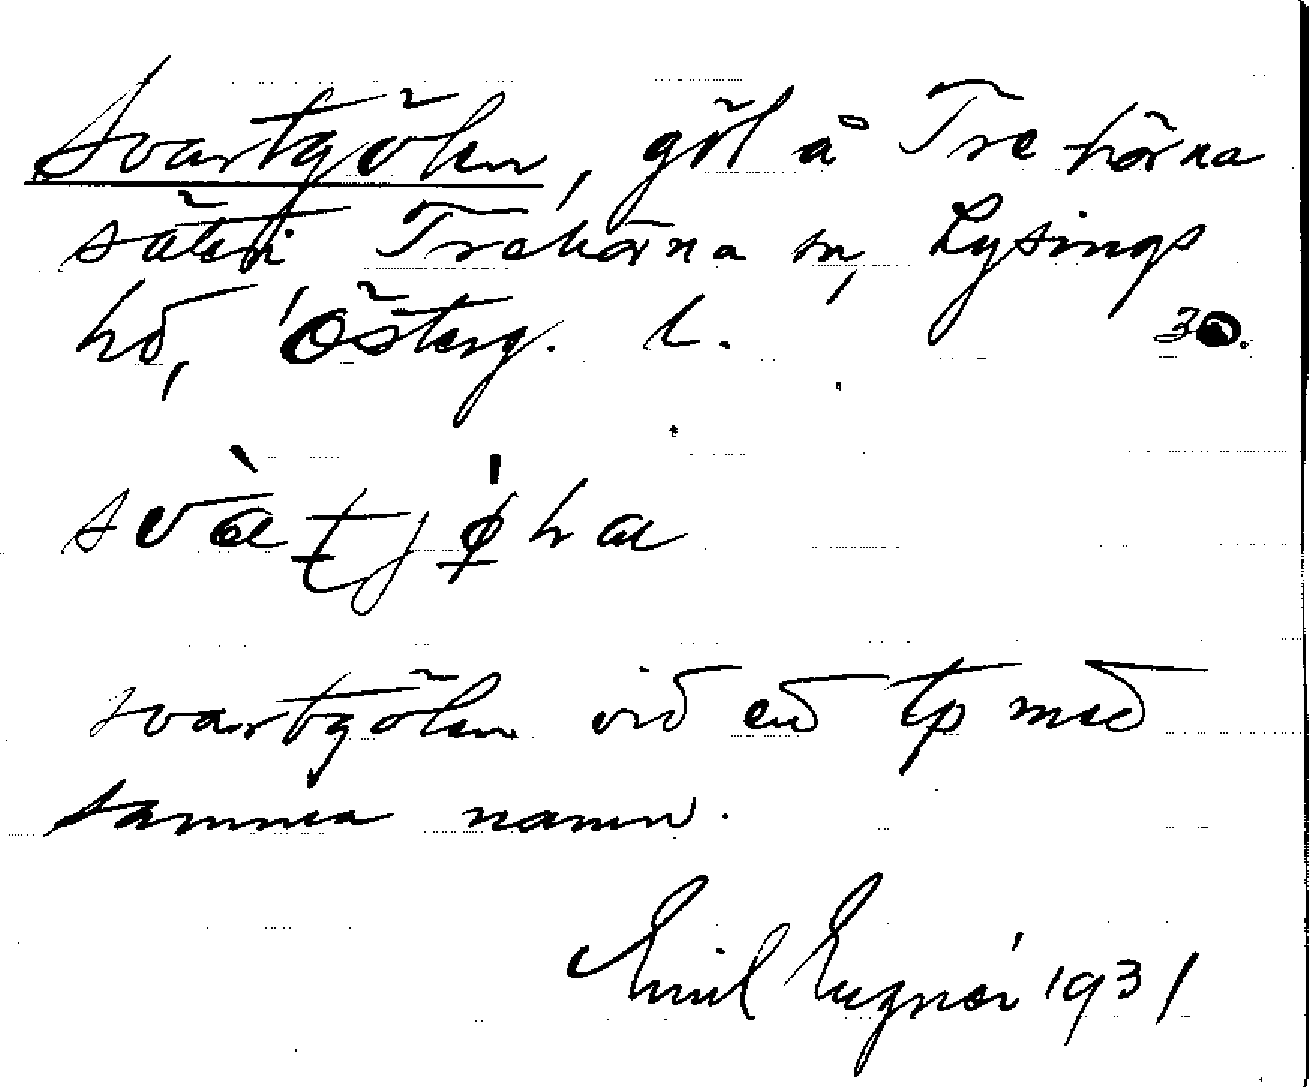 Svartgölen, göl å Trehörna
säteri Trehörna sn, Lysings
hd, Österg. l. 30.
svartgölen vid ett tp med
samma namn.
Emil 1931